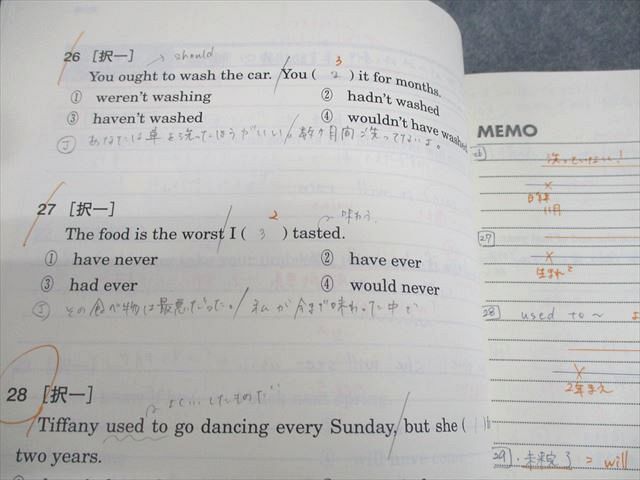 26 [択一] should
3
You ought to wash the car. You ( 2 ) it for months.
① weren't washing ② hadn't washed
③ haven't washed ④ wouldn't have washed
あなたは車を洗ったほうがいい。数ヶ月間洗ってないよ。
27 [択一] 味わう
2
The food is the worst I ( 3 ) tasted.
① have never ② have ever
③ had ever ④ would never
その食べ物は最悪だった。私が今まで味わった中で
28 [択一]
Tiffany used to go dancing every Sunday, but she (
two years.
MEMO
洗っていない!
27
生まれて
28 used to ~
2年まえ
29 ・未来完了 = will